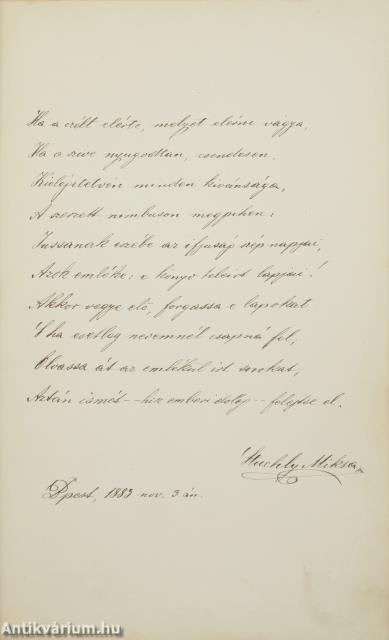 Ha a czélt elérte, melyet elérni vágya,
Ha a szive nyugodtan, csendesen,
Kielégitetvén minden kivánsága,
A szerzett nimbuson megpihen:
Jussanak eszébe az ifjuság szép napjai,
Azok emléke: e könyv teleirt lapjai!
Akkor vegye elő, forgassa e lapokat
S ha esetleg nevemnél csapná fel,
Olvassa át az emlékül irt sorokat,
Aztán ismét -- hisz emberi dolog -- felejtse el.
Stuchly Miksa
Bpest, 1883 nov. 3 án.
Antikvárium.hu